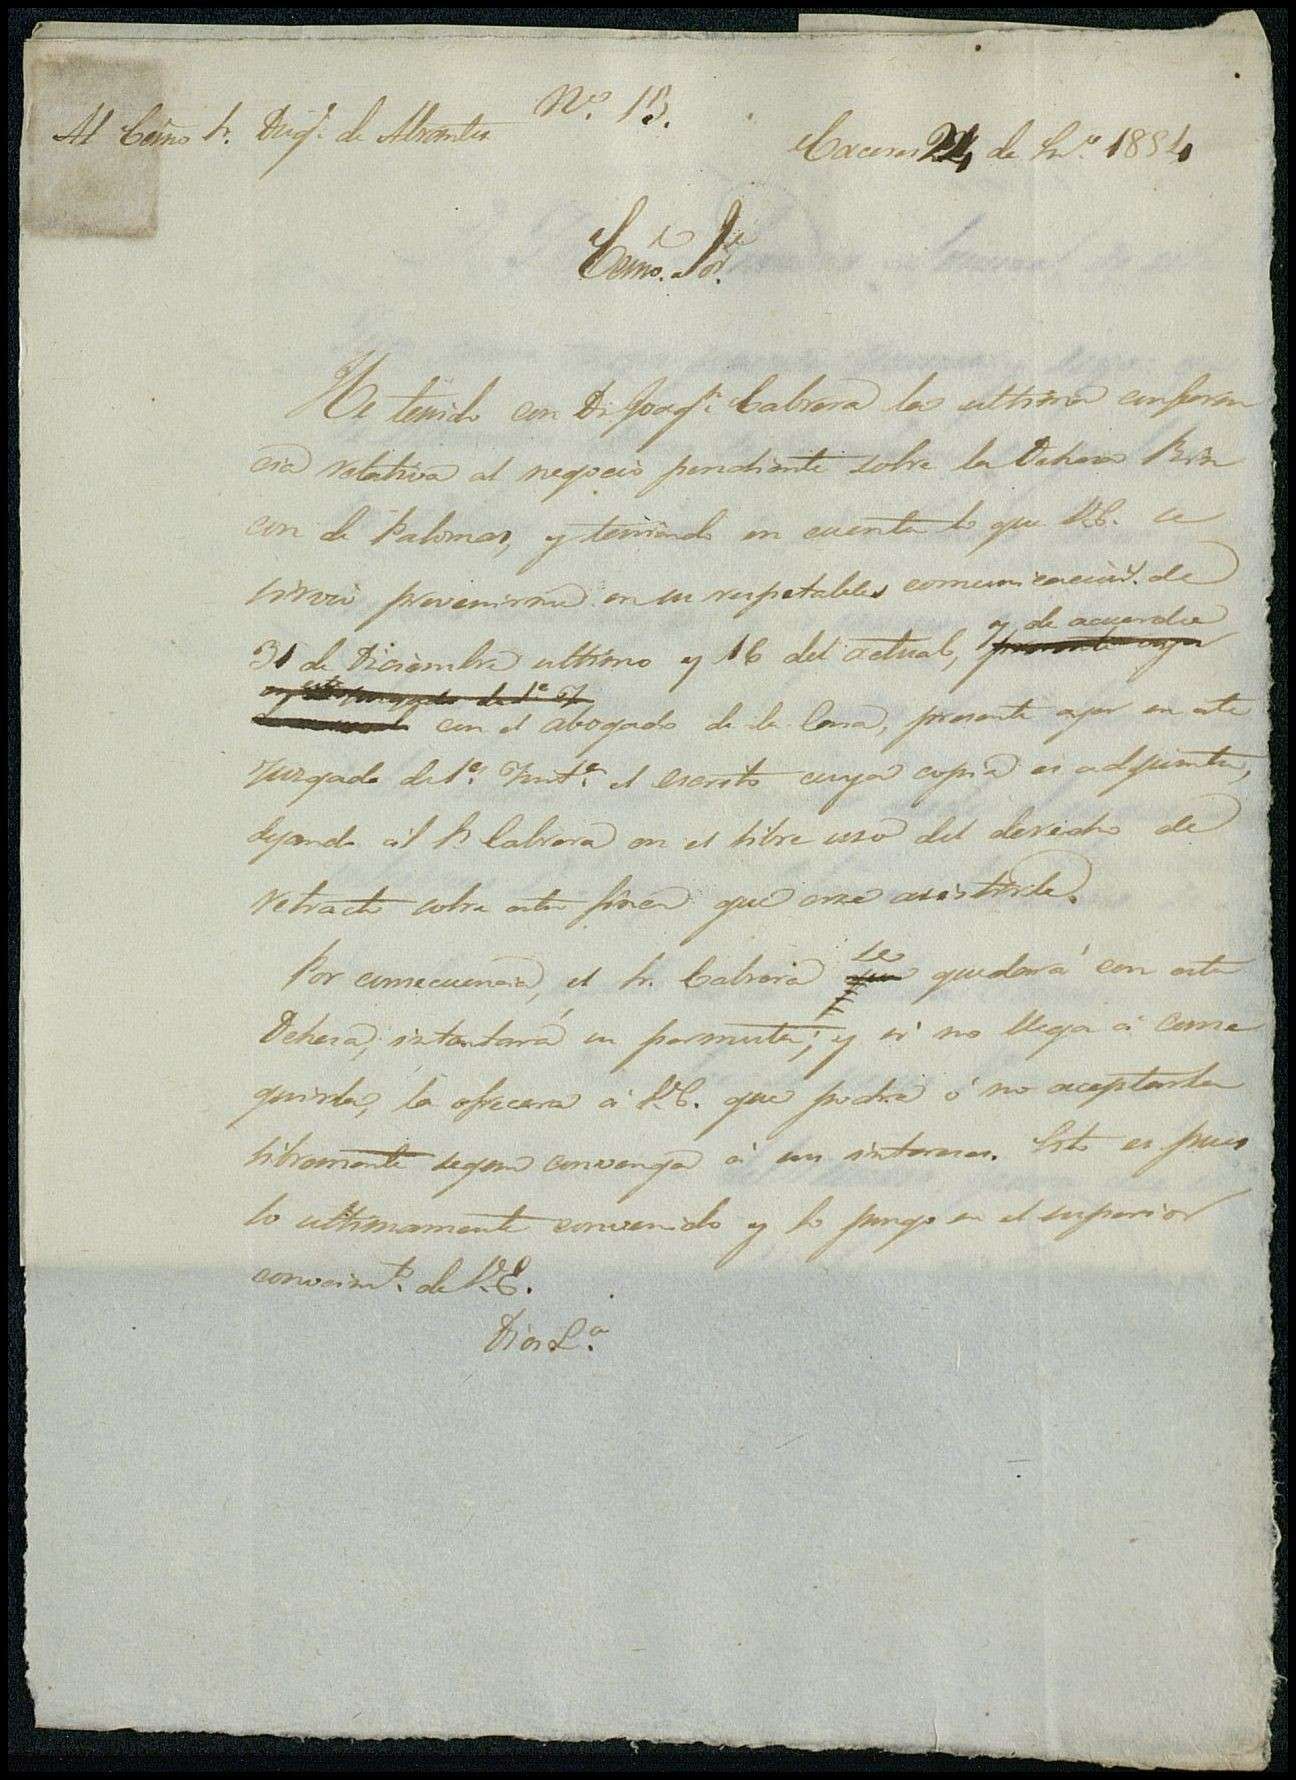 Nº. 13.
Al Excmo Sr. Duqe. de Abrantes
Caceres 24 de En.º 1884
Excmo. Sor.
He tenido con D. Joaqn. Cabrera la ultima conferen
cia relativa al negocio pendiente sobre la Dehesa Rin
con de Palomas, y teniendo en cuenta lo que V.E. se
sirvió prevenirme en sus respetables comunicacions. de
31 de Diciembre ultimo y 16 del actual, y de acuerdo
con el abogado de la Casa, presenté ayer en este
Juzgado de 1ª. Instª. el escrito cuya copia es adjunta,
dejando al Sr Cabrera en el libre uso del derecho de
retracto sobre esta finca que cree asistirle.
Por consecuencia, el Sr. Cabrera se quedará con esta
Dehesa, intentará su permuta; y si no llega á conse
guirla, la ofrecerá á V.E. que podrá ó no aceptarla
libremente segun convenga á sus intereses. Esto es pues
lo ultimamente convenido y lo pongo en el superior
conocimtº. de V.E.
Dios &ª.